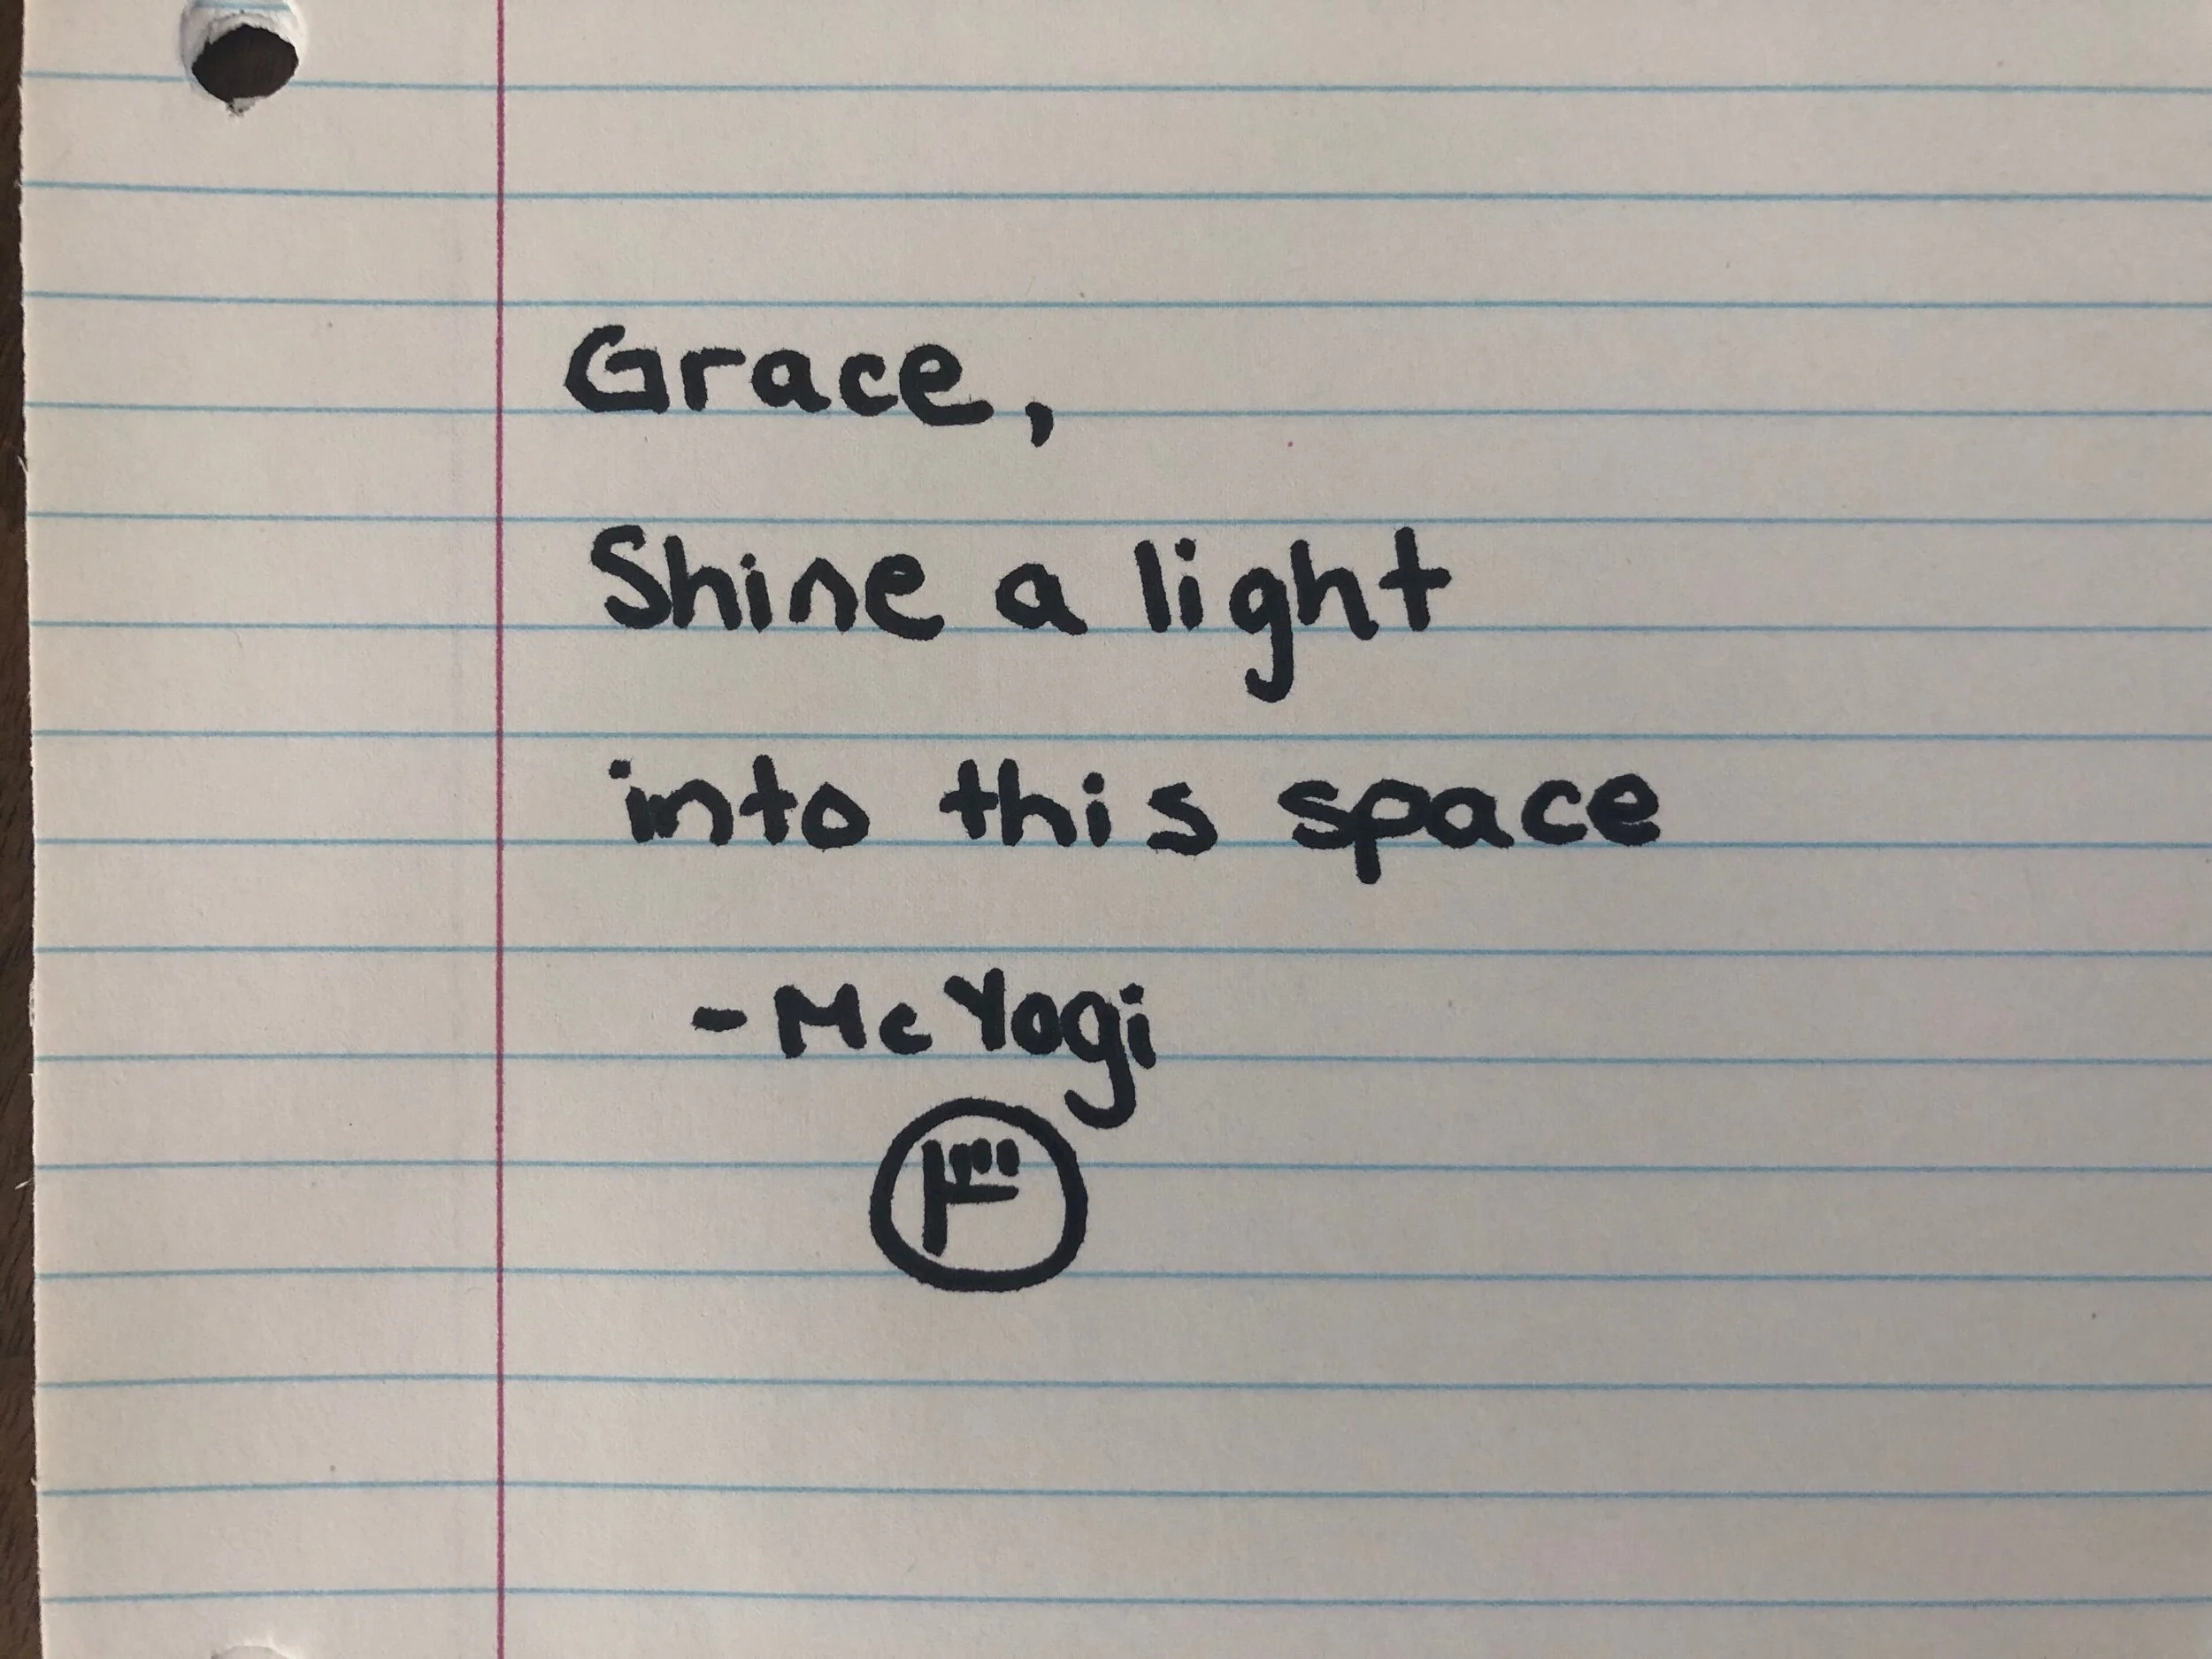 Grace,
Shine a light
into this space
- Mc Yogi